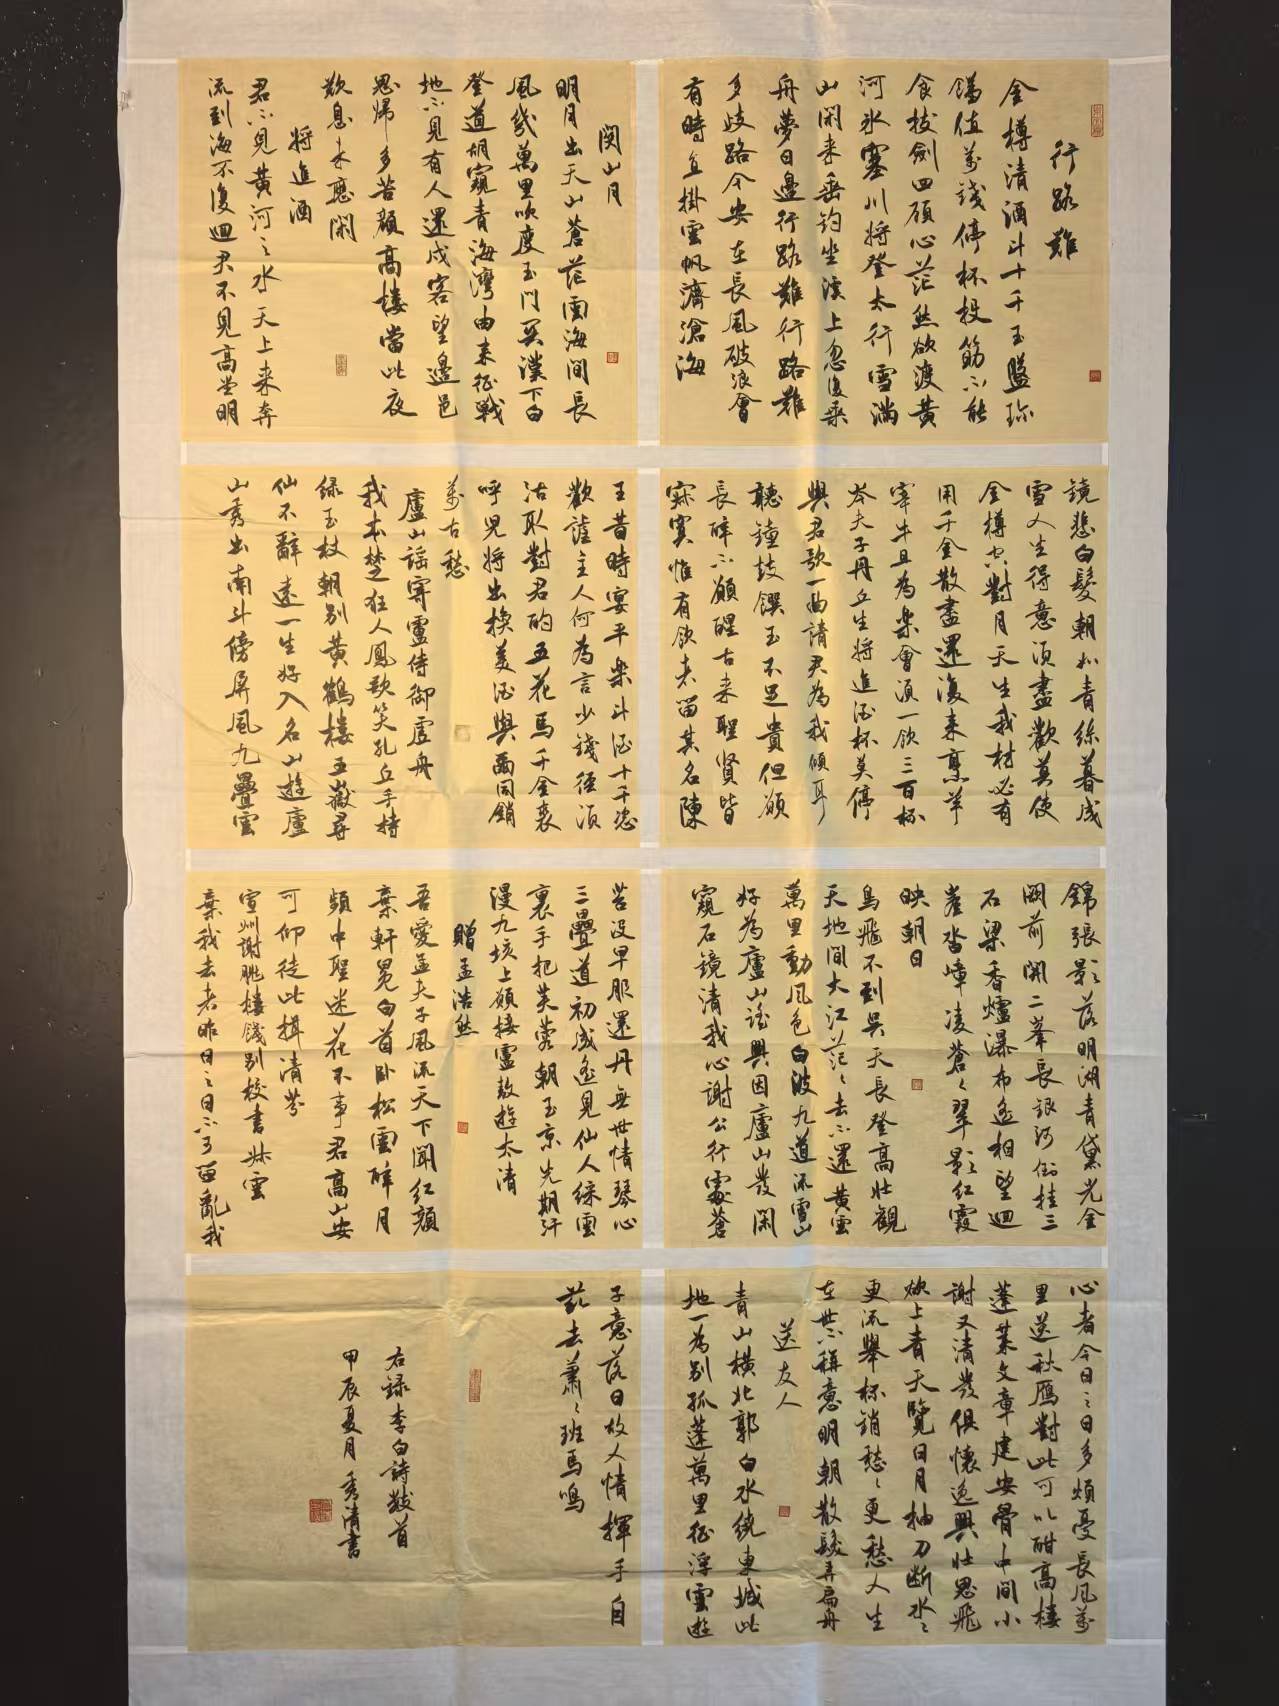 行路難
金樽清酒斗十千玉盤珎
饈值萬錢停杯投筯不能
食拔劍四顧心茫然欲渡黃
河氷塞川將登太行雪滿
山閑来垂釣坐溪上忽復乘
舟夢日邊行路難行路難
多歧路今安在長風破浪會
有時直掛雲帆濟滄海
関山月
明月出天山蒼茫雲海間長
風幾萬里吹度玉門関漢下白
登道胡窺青海灣由来征戰
地不見有人還戍客望邊邑
思歸多苦顏高樓當此夜
歎息未應閑
將進酒
君不見黃河之水天上来奔
流到海不復迴君不見高堂明
鏡悲白髮朝如青絲暮成
雪人生得意須盡歡莫使
金樽空對月天生我材必有
用千金散盡還復来烹羊
宰牛且為樂會須一飲三百杯
岑夫子丹丘生將進酒杯莫停
與君歌一曲請君為我傾耳
聽鐘鼓饌玉不足貴但願
長醉不願醒古来聖賢皆
寂寞惟有飲者留其名陳
王昔時宴平樂斗酒十千恣
歡謔主人何為言少錢徑須
沽取對君酌五花馬千金裘
呼兒將出換美酒與爾同銷
萬古愁
廬山謠寄盧侍御虛舟
我本楚狂人鳳歌笑孔丘手持
綠玉杖朝別黃鶴樓五嶽尋
仙不辭遠一生好入名山遊廬
山秀出南斗傍屏風九疊雲
錦張影落明湖青黛光金
闕前開二峯長銀河倒挂三
石梁香爐瀑布遙相望迴
崖沓嶂凌蒼蒼翠影紅霞
映朝日
鳥飛不到吳天長登高壯觀
天地間大江茫茫去不還黃雲
萬里動風色白波九道流雪山
好為廬山謠興因廬山發閑
窺石鏡清我心謝公行處蒼
苔沒早服還丹無世情琴心
三疊道初成遙見仙人綵雲
裏手把芙蓉朝玉京先期汗
漫九垓上願接盧敖遊太清
贈孟浩然
吾愛孟夫子風流天下聞紅顏
棄軒冕白首臥松雲醉月
頻中聖迷花不事君高山安
可仰徒此揖清芬
宣州謝朓樓餞別校書叔雲
棄我去者昨日之日不可留亂我
心者今日之日多煩憂長風萬
里送秋雁對此可以酣高樓
蓬萊文章建安骨中間小
謝又清發俱懷逸興壯思飛
欲上青天覽日月抽刀斷水水
更流舉杯銷愁愁更愁人生
在世不稱意明朝散髮弄扁舟
送友人
青山橫北郭白水繞東城此
地一為別孤蓬萬里征浮雲遊
子意落日故人情揮手自
茲去蕭蕭班馬鳴
右錄李白詩數首
甲辰夏月秀清書